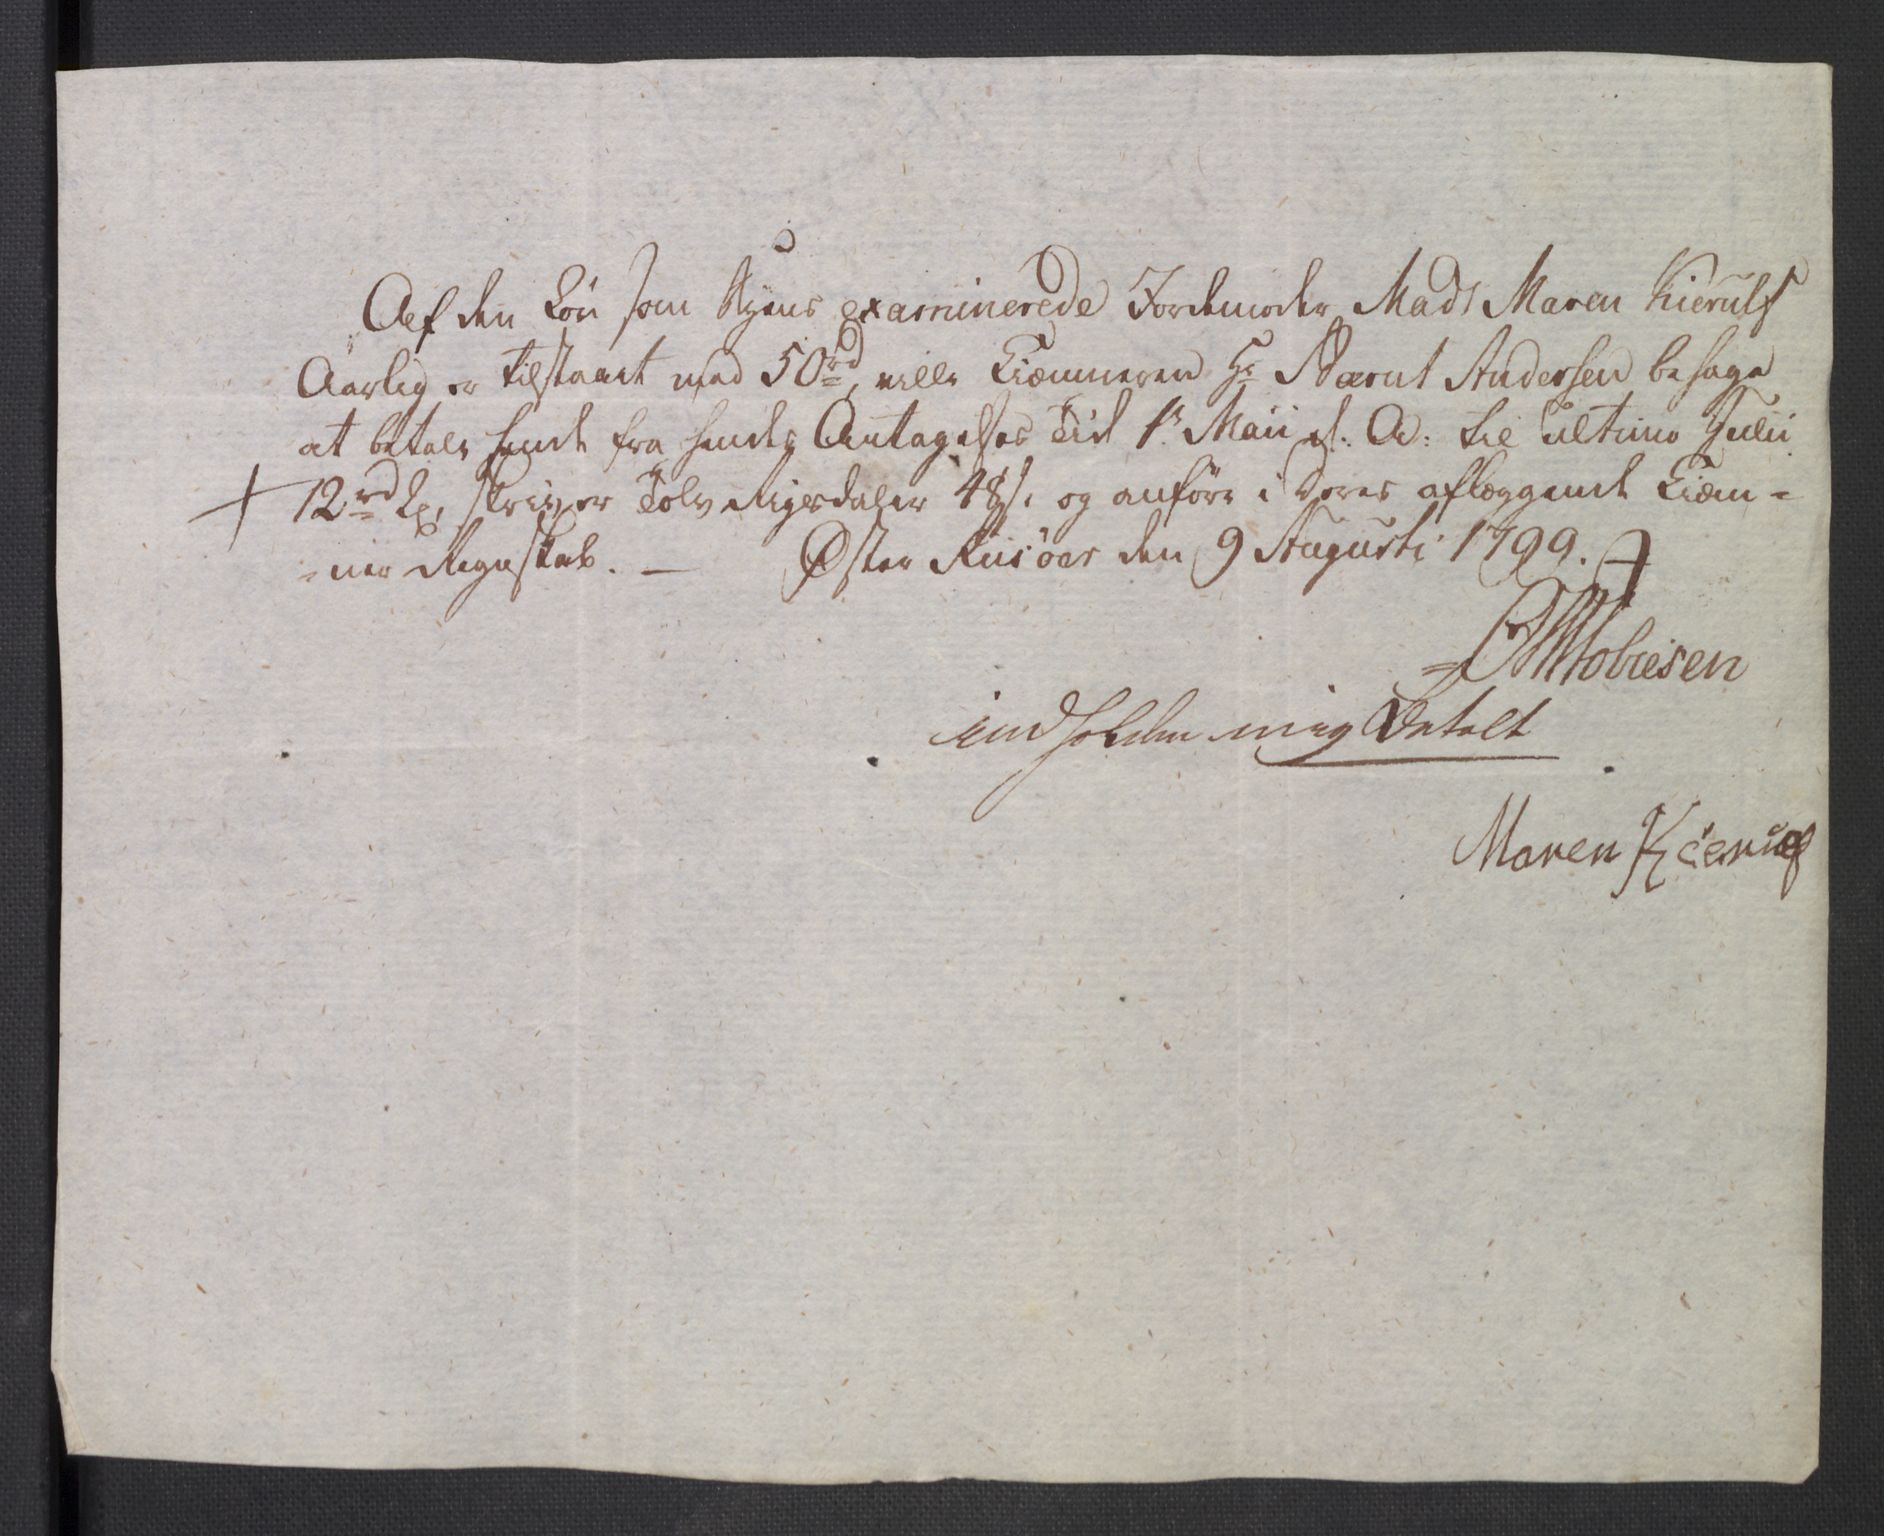 Aef den Løn som Byens examinerede Jordemoder Mad! Maren Kierulf
Aarlig er tilstaaet med 50rd, ville Kiæmneren Hr Bærnt Andersen behage
at betale hende fra hendes Antagelses Tid 1te Maii d: A: til ultimo Julii
12rd ½, skriver Tolv Rigsdaler 48s. og anføre i Deres aflæggende Kiæm-
-ner Regnskab. — Øster Riisöer den 9 Augusti 1799.
Tobiesen
indholden mig Betalt
Maren Kierulf